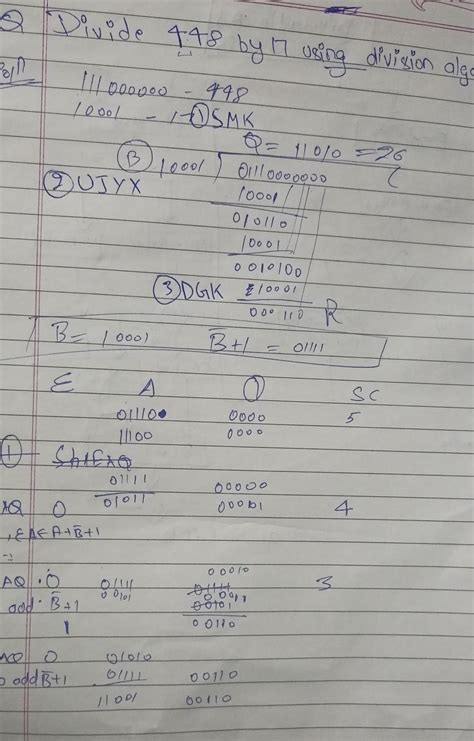 Q Divide 448 by 17 using division algo
Soln
111000000 - 448
10001 - 17 ① SMK
Q = 11010 = 26
Ⓑ 10001 ) 0111000000 (
② UJYX
10001
010110
10001
0010100
③ DGK 10001
000110 R
B = 10001 B̅+1 = 01111
E A Q SC
01110 0000 5
11100 0000
① ShlEAQ
01111 00000
01011 00001 4
AQ 0
EA←A+B̅+1
00010
AQ 0 01111 3
00101
add B̅+1
1 00110
AQ 0 01010
add B̅+1 01111 00110
11001 00110